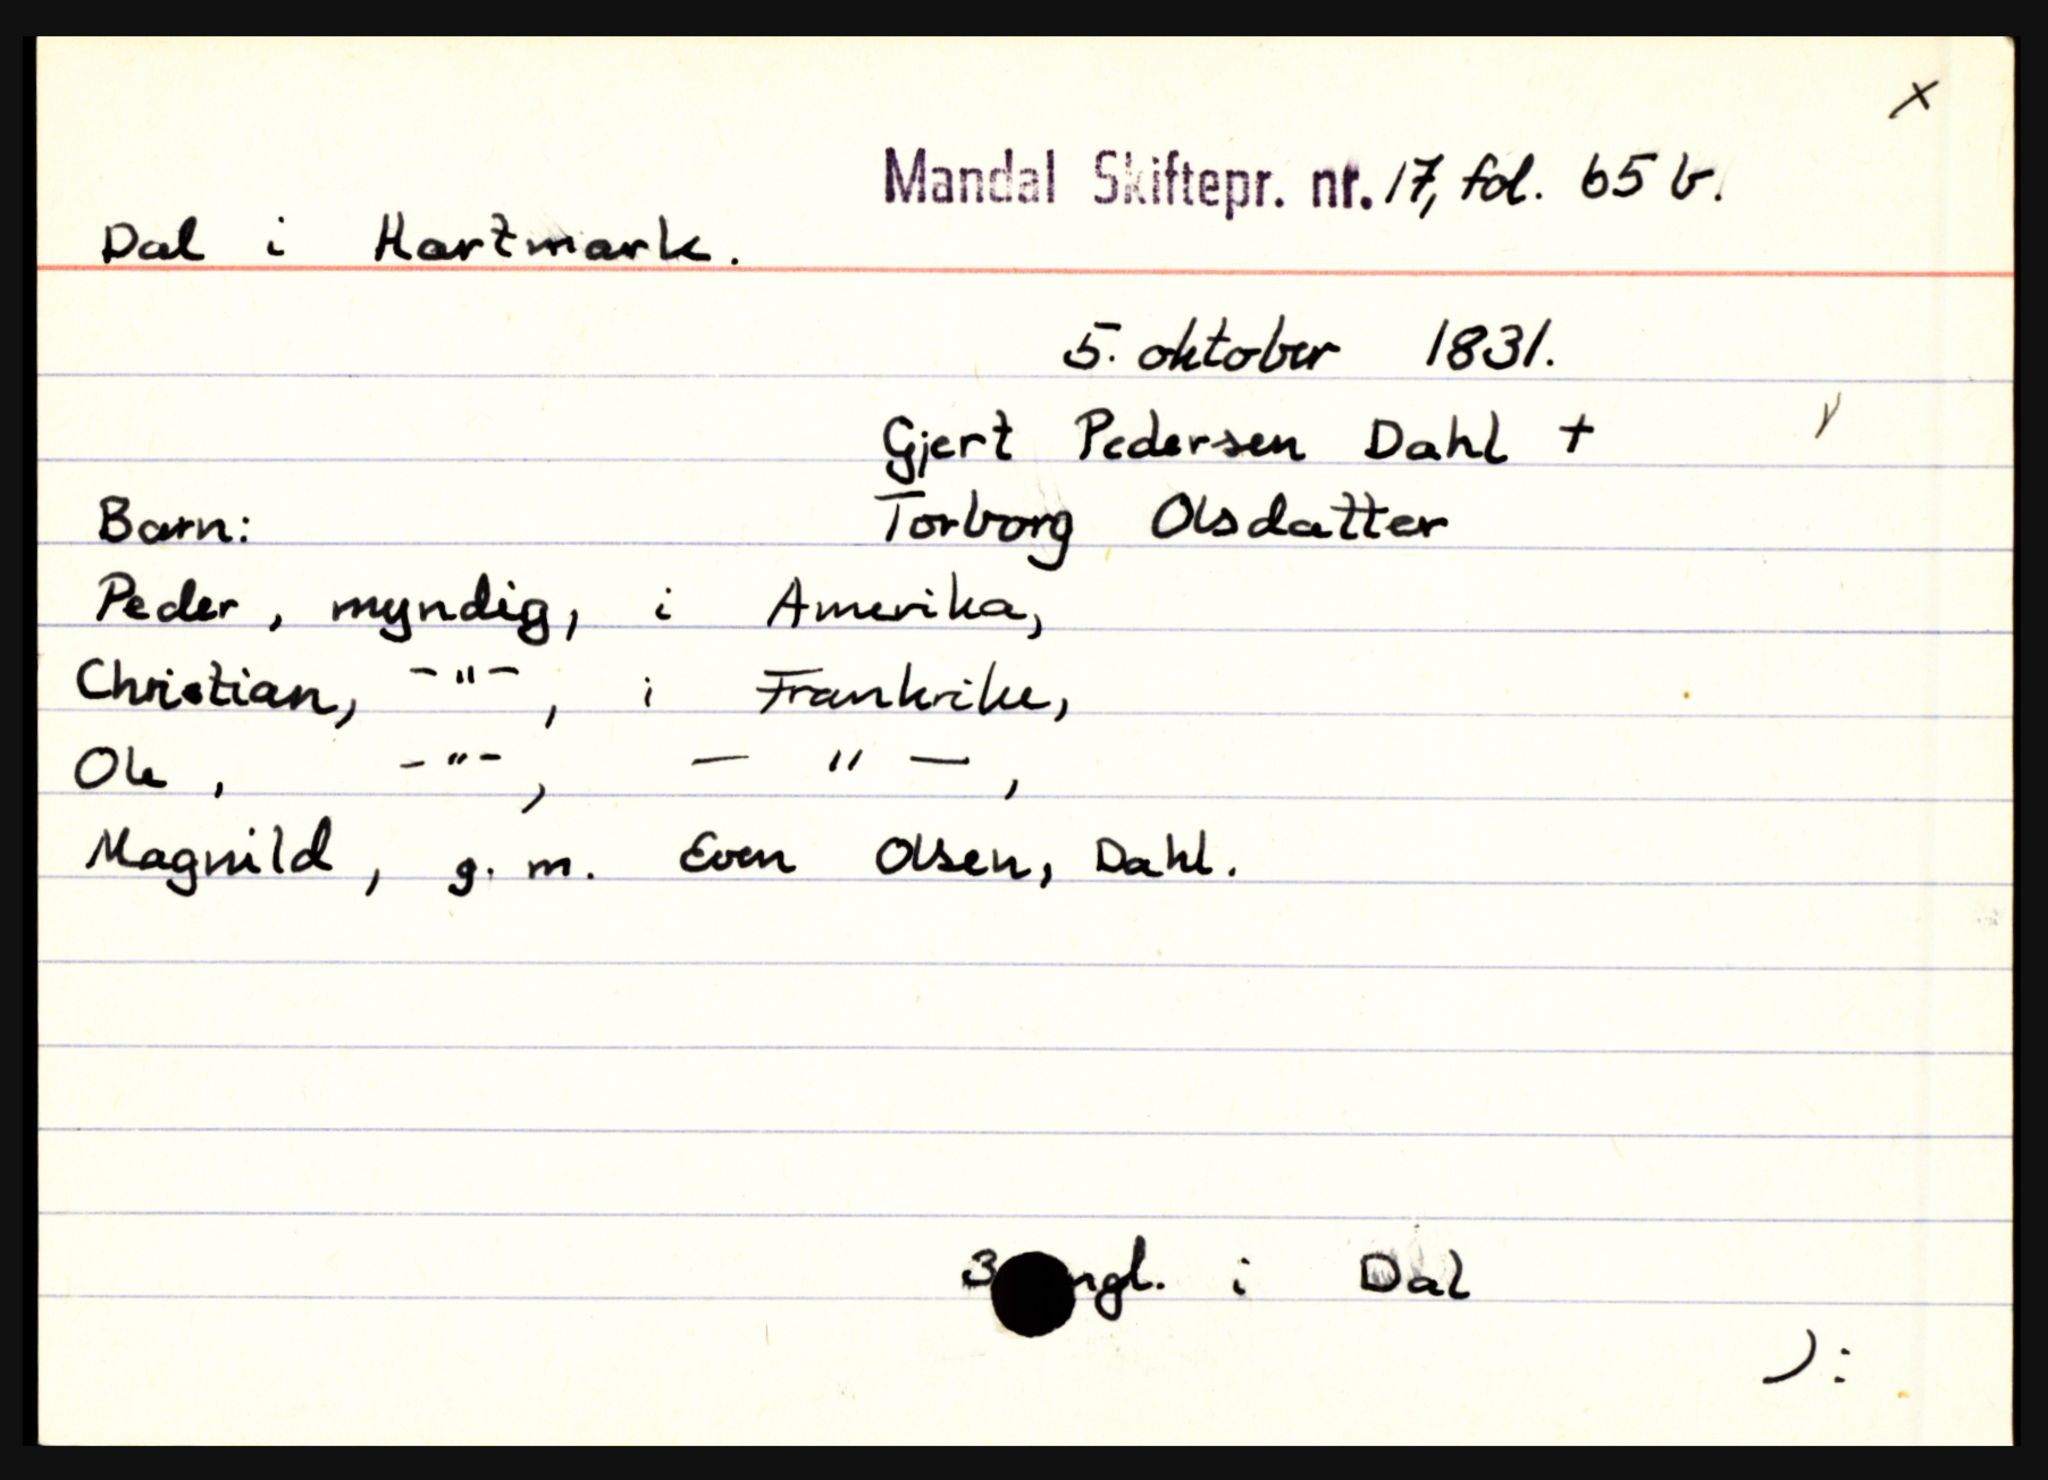 x
Mandal Skiftepr. nr. 17, fol. 65 b.
Dal i Hartmark.
5. oktober 1831.
Gjert Pedersen Dahl +
Barn: Torborg Olsdatter
Peder, myndig, i Amerika,
Christian, -"-, i Frankrike,
Ole, -"-, - " -,
Magnild, g. m. Even Olsen, Dahl.
3 ngl. i Dal
):